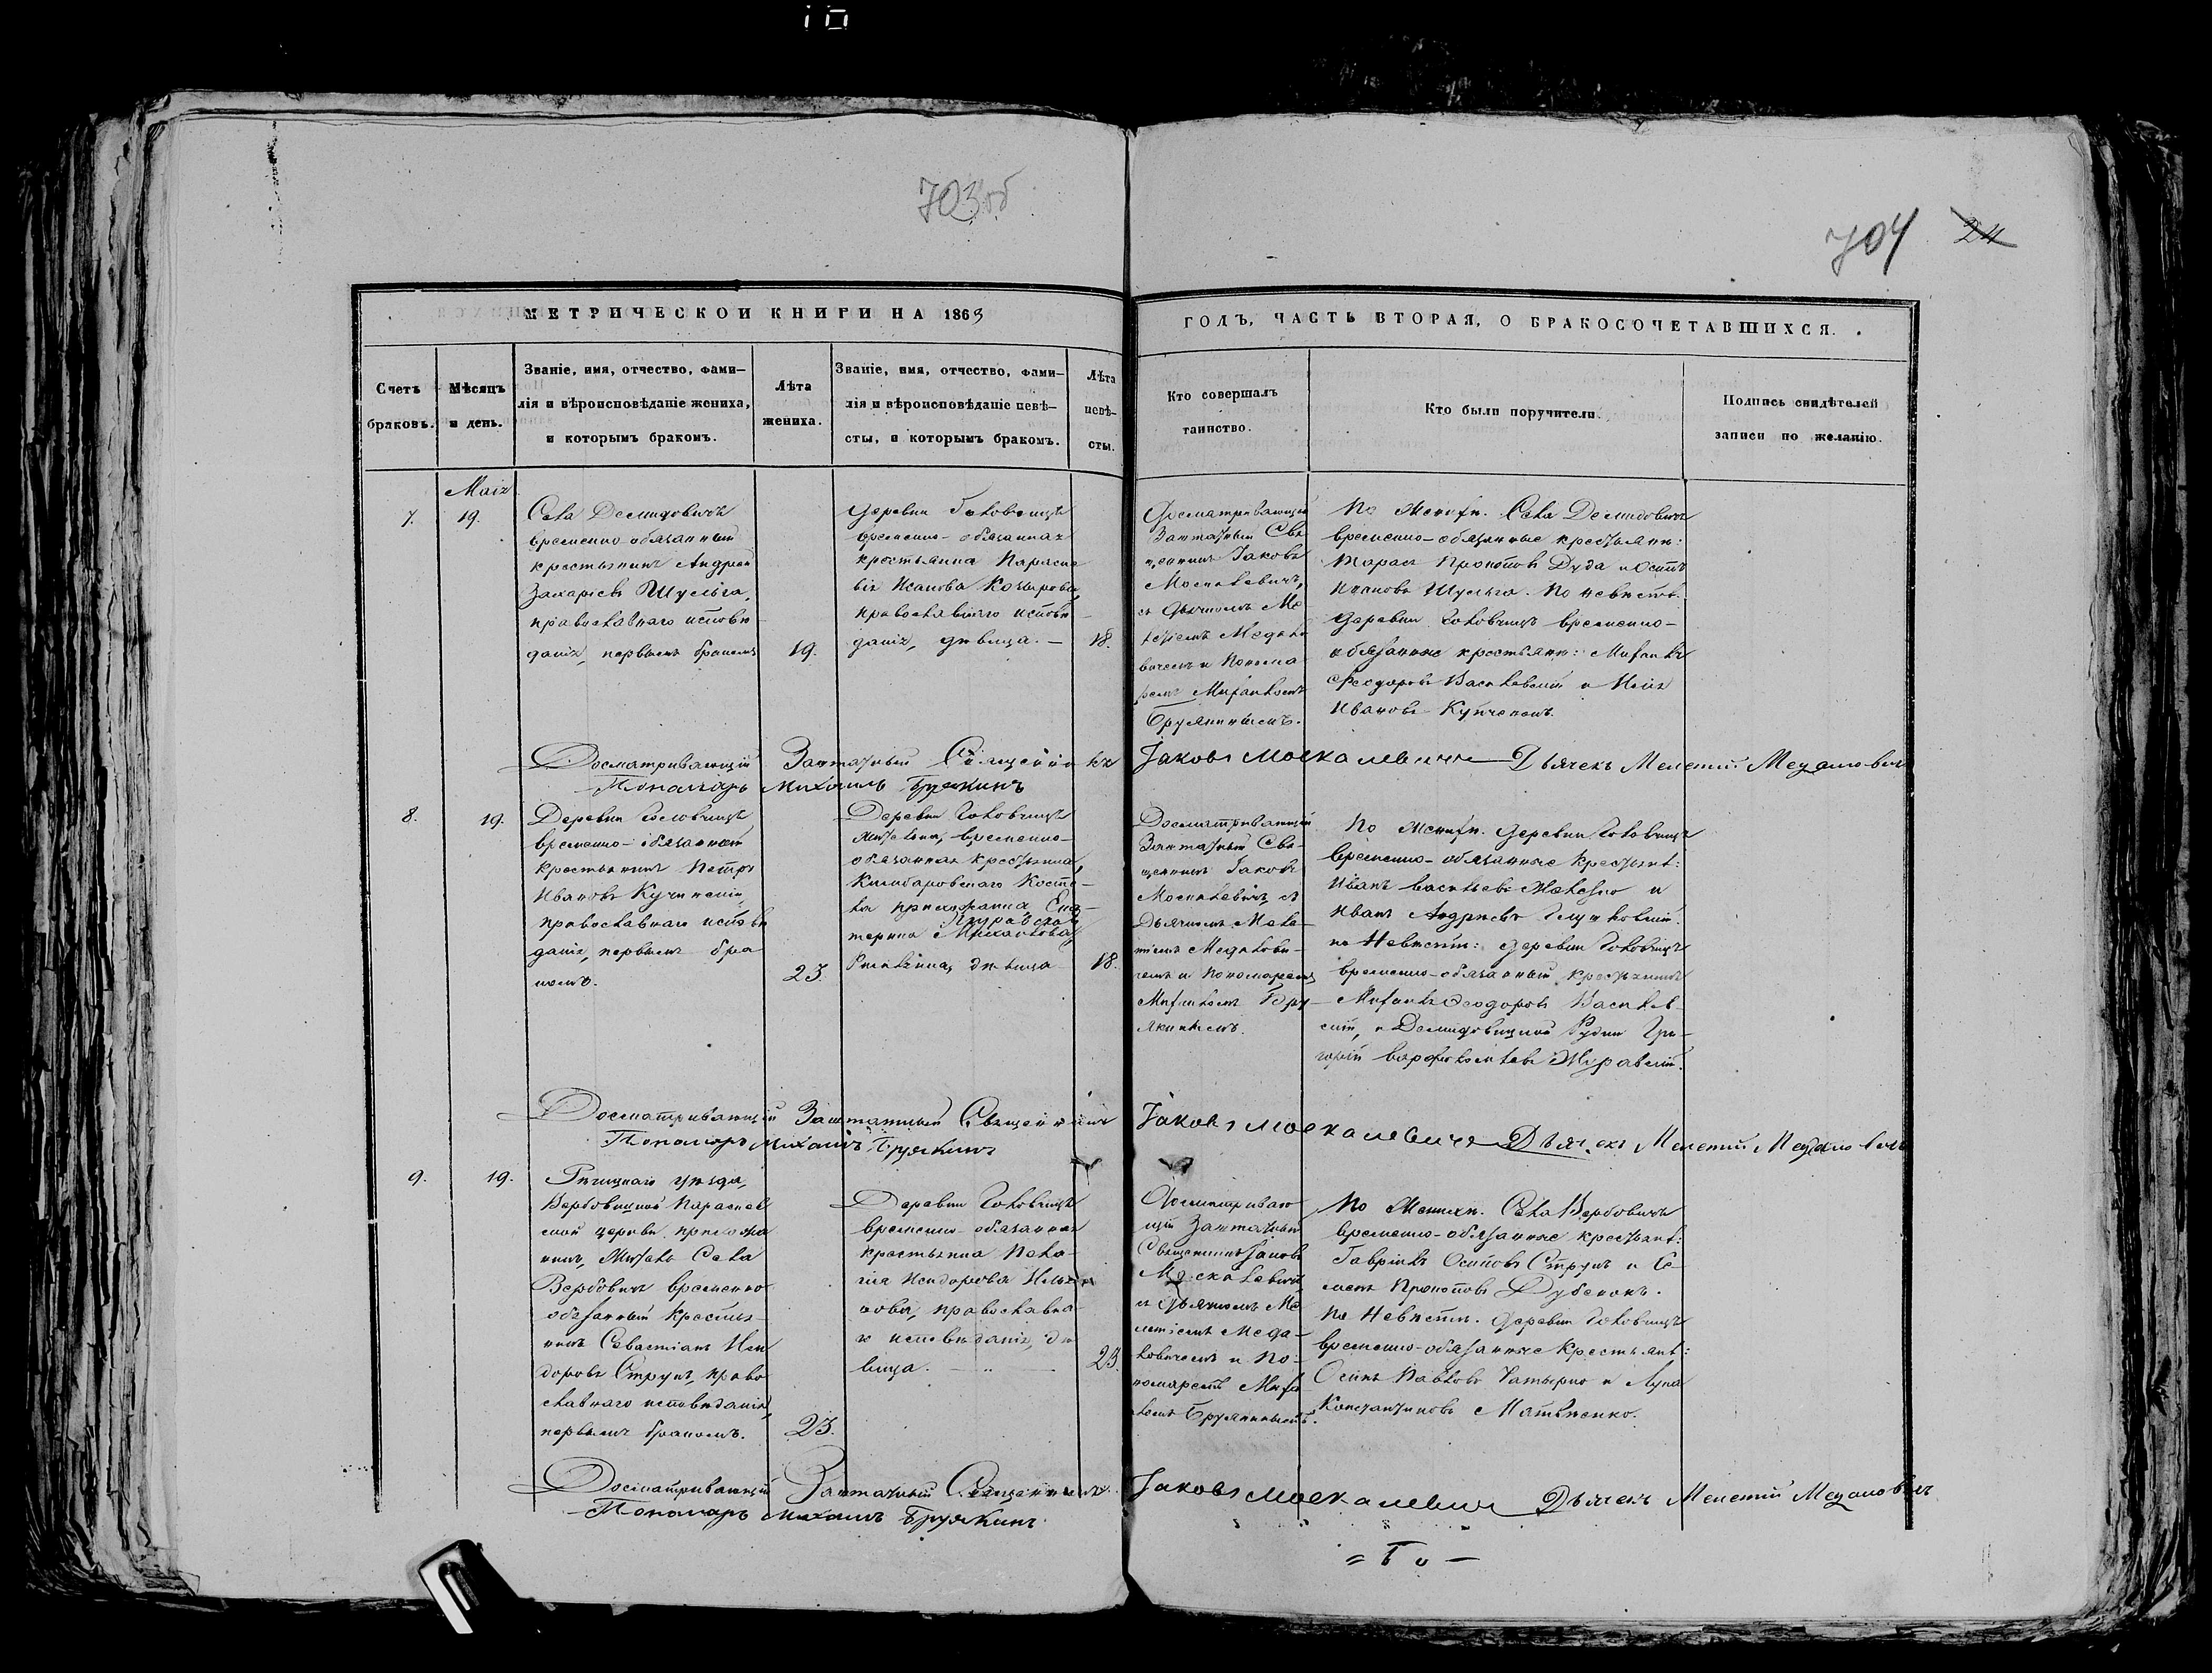 703об
704 24
МЕТРИЧЕСКОЙ КНИГИ НА 1863
ГОДЪ, ЧАСТЬ ВТОРАЯ, О БРАКОСОЧЕТАВШИХСЯ.
Счетъ
браковъ.
Мѣсяцъ
и день.
Званіе, имя, отчество, фами-
лія и вѣроисповѣданіе жениха,
и которымъ бракомъ.
Лѣта
жениха.
Званіе, имя, отчество, фами-
лія и вѣроисповѣданіе невѣ-
сты, и которымъ бракомъ.
Лѣта
невѣ-
сты.
Кто совершалъ
таинство.
Кто были поручители.
Подпись свидѣтелей
записи по желанію.
Маія
7.
19.
Села Демидовичъ
временно обязанный
крестьянинъ Андрей
Захарьевъ Шульга,
православнаго исповѣ
данія, первымъ бракомъ
19.
Деревни
временно-обязанная
крестьянка Параске
вія
православнаго исповѣ-
данія, дѣвица. —
18.
Досматривающій
Заштатный Свя
щенникъ Іаковъ
Москалевичъ,
съ Дьячкомъ Ме
летіемъ
вичемъ и Понома
ремъ Михаиломъ
По жених. Села Демидовичъ
временно-обязанные крестьяне:
Тарасъ Прокоповъ Дуда и Осипъ
Ивановъ Шульга. По невѣстѣ.
Деревни временно-
обязанные крестьяне: Михаилъ
Феодоровъ и
Ивановъ
Досматривающій Заштатный Священникъ Іаковъ Москалевичъ Дьячекъ Мелетій
Пономарь Михаилъ
8.
19.
Деревни
временно-обязанный
крестьянинъ Петръ
Ивановъ
православнаго исповѣ
данія, первымъ бра
комъ.
23.
Деревни
жителька, временно-
обязанная крестьянка,
Косте-
ла прихожанка Ека-
терина Михайлова
дѣвица
18.
Досматривающій
Заштатный Свя-
щенникъ Іаковъ
Москалевичъ съ
Дьячкомъ Меле-
тіемъ
чемъ и Пономаремъ
Михаиломъ
По жених. Деревни
временно-обязанные крестьяне:
Иванъ Васильевъ и
Иванъ Андреевъ
по Невѣстѣ: деревни
временно-обязанный крестьянинъ
Михаилъ Феодоровъ
скій, и Демидовицкой Рудни Гри-
горій Варфоломеевъ Журавскій.
Досматривающій Заштатный Священникъ Іаковъ Москалевичъ Дьячекъ Мелетій
Пономарь Михаилъ
9.
19.
Рѣчицкаго уѣзда,
Вербовицкой Параскев
ской церкви прихожа
нинъ, житель Села
Вербовичъ временно
обязанный крестья-
нинъ Севастіанъ Иси
доровъ Струкъ, право
славнаго исповѣданія,
первымъ бракомъ.
23.
Деревни
временно-обязанная
крестьянка Пела-
гія Исидорова
православна
го исповѣданія, дѣ
вица.
23.
Досматриваю
щій Заштатный
Священникъ Іаковъ
Москалевичъ,
съ Дьячкомъ Ме
летіемъ
и По-
номаремъ Михаи
ломъ
По жених. Села Вербовичъ
временно-обязанные крестьяне:
Гавріилъ Осиповъ Струкъ и Се
менъ Прокоповъ Дубенокъ.
По Невѣстѣ. Деревни
временно-обязанные крестьяне:
Осипъ Павловъ и Лука
Константиновъ Матвѣенко.
Досматривающій Заштатный Священникъ Іаковъ Москалевичъ Дьячекъ Мелетій
Пономарь Михаилъ